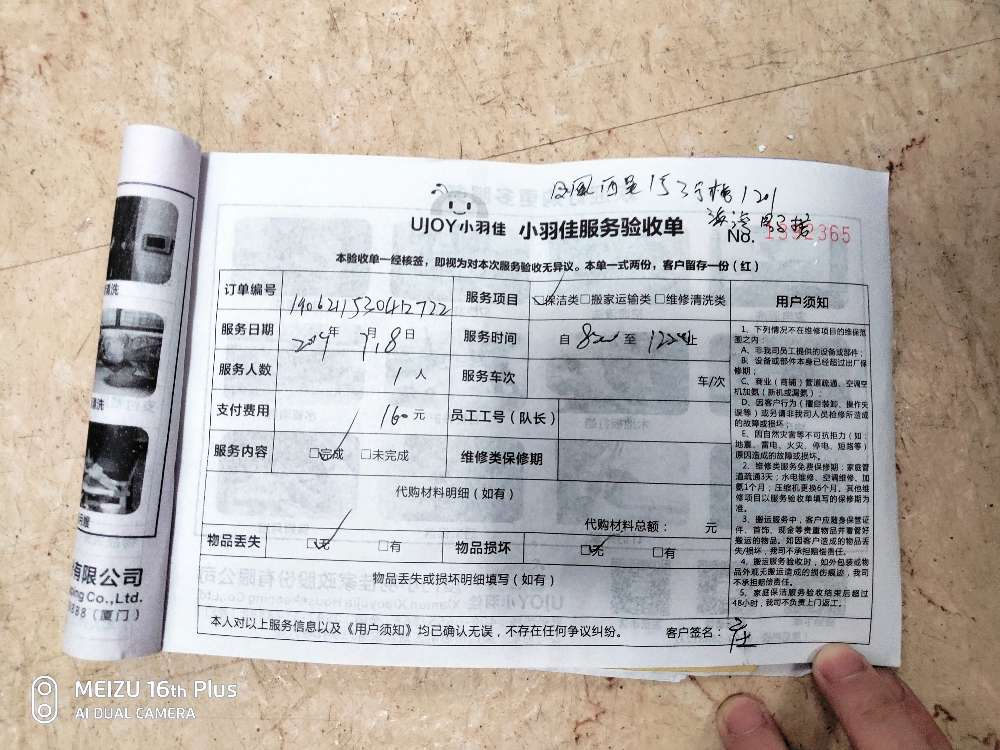 UJOY小羽佳 小羽佳服务验收单
No. 1392365
本验收单一经核签，即视为对本次服务验收无异议。本单一式两份，客户留存一份（红）
订单编号 190621153042722 服务项目 □保洁类□搬家运输类□维修清洗类 用户须知
服务日期 2019年7月8日 服务时间 自8 至12 止
服务人数 1人 服务车次 车/次
支付费用 160元 员工工号（队长）
服务内容 □完成 □未完成 维修类保修期
代购材料明细（如有）
代购材料总额： 元
物品丢失 □无 □有 物品损坏 □无 □有
物品丢失或损坏明细填写（如有）
本人对以上服务信息以及《用户须知》均已确认无误，不存在任何争议纠纷。 客户签名：庄
1、下列情况不在维修项目的维保范
围之内：
A、非我司员工提供的设备或部件；
B、设备或部件本身已经超过出厂保
修期；
C、商业（商铺）管道疏通、空调空
机加氨（新机或漏氨）；
D、因客户行为（擅自装卸、操作失
误等）或另请非我司人员检修所造成
的故障或损坏；
E、因自然灾害等不可抗拒力（如：
地震、雷电、火灾、停电、短路等）
原因造成的故障或损坏。
2、维修类服务免费保修期：家庭管
道疏通3天；水电维修、空调维修、加
氨1个月；压缩机更换6个月，其他维
修项目以服务验收单填写的保修期为
准。
3、搬运服务中，客户应随身保管证
件、首饰、现金等贵重物品并看管好
搬运的物品。如因客户造成的物品丢
失/损坏，我司不承担赔偿责任。
4、搬运服务验收时，如外包装或物
品外观无搬运造成的损伤痕迹，我司
不承担赔偿责任。
5、家庭保洁服务验收结束后超过
48小时，我司不负责上门返工。
有限公司
ping Co.,Ltd.
8888（厦门）
MEIZU 16th Plus
AI DUAL CAMERA